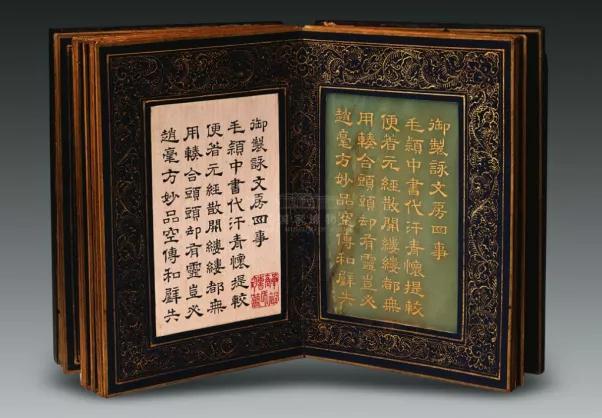 御製詠文房四事
毛穎中書代汗青懷提較
便若元經散開縷縷都無
用輳合頭頭却有靈豈必
趙毫方妙品空傳和璧共
御製詠文房四事
毛穎中書代汗青懷提較
便若元經散開縷縷都無
用輳合頭頭却有靈豈必
趙毫方妙品空傳和璧共